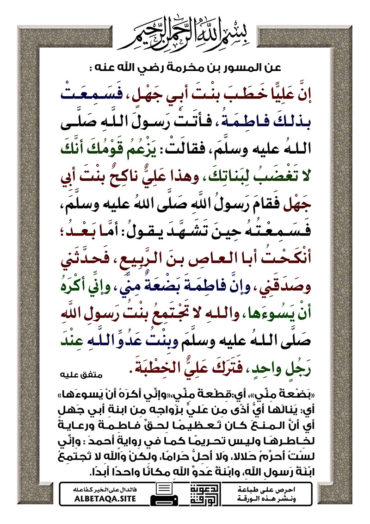 بِسْمِ اللَّهِ الرَّحْمَنِ الرَّحِيمِ
عن المسور بن مخرمة رضي الله عنه :
إنَّ عَلِيًّا خَطَبَ بنْتَ أبي جَهْلٍ، فَسَمِعَتْ
بذلكَ فاطِمَةُ، فأتَتْ رَسولَ اللهِ صَلَّى
اللهُ عليه وسلَّمَ، فقالَتْ: يَزْعُمُ قَوْمُكَ أنَّكَ
لا تَغْضَبُ لِبَناتِكَ، وهذا عَلِيٌّ ناكِحٌ بنْتَ أبِي
جَهْلٍ فَقامَ رَسولُ اللَّهِ صَلَّى اللهُ عليه وسلَّمَ،
فَسَمِعْتُهُ حِينَ تَشَهَّدَ يقولُ: أمَّا بَعْدُ؛
أنْكَحْتُ أبا العاصِ بنَ الرَّبِيعِ، فَحدَّثَنِي
وصَدَقَنِي، وإنَّ فاطِمَةَ بَضْعَةٌ مِنِّي، وإنِّي أكْرَهُ
أنْ يَسُوءَها، واللهِ لا تَجْتَمِعُ بنْتُ رَسولِ اللَّهِ
صَلَّى اللهُ عليه وسلَّمَ وبِنْتُ عَدُوِّ اللَّهِ عِنْدَ
رَجُلٍ واحِدٍ، فَتَرَكَ عَلِيٌّ الخِطْبَةَ.
متفق عليه
«بَضْعَةٌ مِنِّي»، أي:قِطعةٌ مِنِّي،«وإنِّي أكرَهُ أنْ يَسوءَها»
أي: يَنالَها أيُّ أذًى مِن عَليٍّ بزَواجِه مِن ابنةِ أبي جَهلٍ
أي أنَّ المنعَ كان تَعظيمًا لحقِّ فاطمةَ ورعايةً
لخاطرِها وليس تحريمًا كما في رواية أحمد : وإنِّي
لستُ أُحرِّمُ حَلالًا، ولا أُحلُّ حَرامًا، ولكنْ واللهِ لا تَجتمِعُ
ابْنَةُ رَسولِ اللهِ، وابْنَةُ عَدوِّ اللهِ مكانًا واحدًا أبدًا.
احرص على طباعة
ونشر هذه الورقة
فالدال على الخير كفاعله
ALBETAQA.SITE